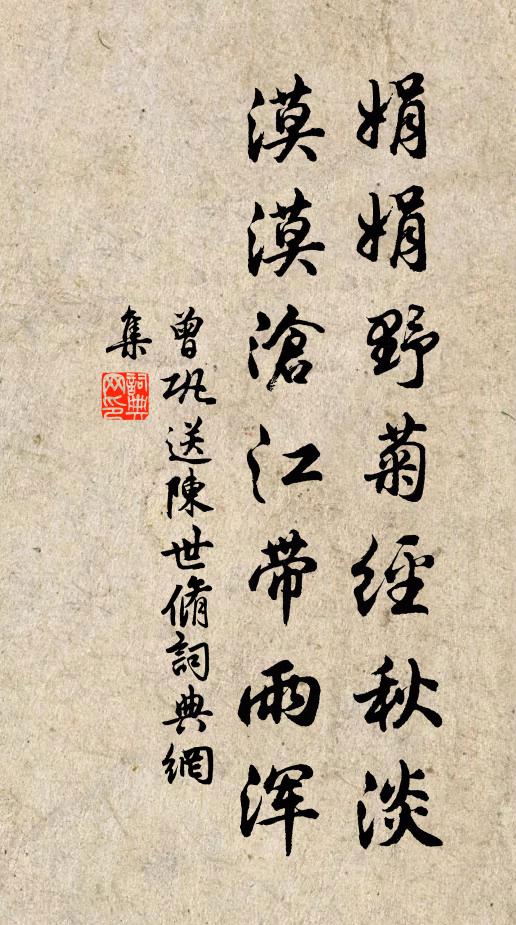 娟娟野菊經秋淡
漠漠滄江带雨浑
曾巩送陳世脩詞典網
集
詞典网印